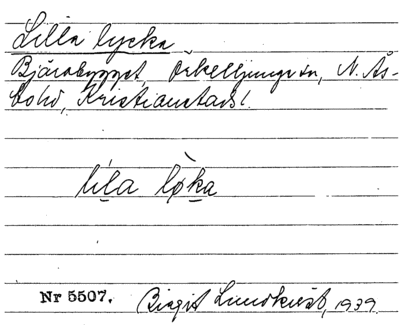 Lilla lycka
Bjärabygget, Örkelljunga sn, N. Ås-
bohd, Kristianstads l.
lila løka
Nr 5507. Birgit Lundkvist, 1939.